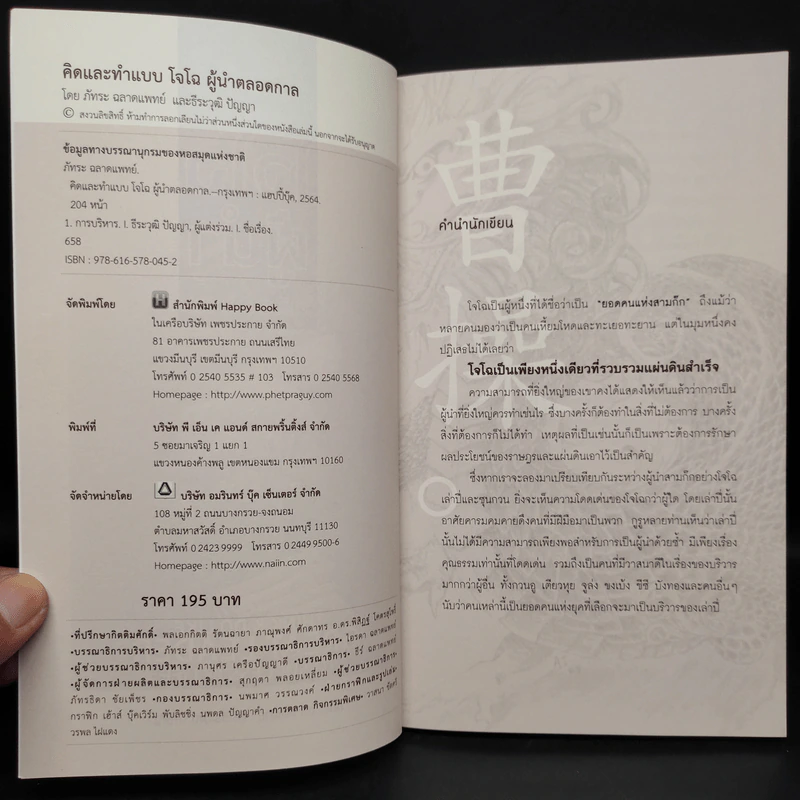 คิดและทำแบบ โจโฉ ผู้นำตลอดกาล
โดย ภัทระ ฉลาดแพทย์ และธีระวุฒิ ปัญญา
© สงวนลิขสิทธิ์ ห้ามทำการลอกเลียนไม่ว่าส่วนหนึ่งส่วนใดของหนังสือเล่มนี้ นอกจากจะได้รับอนุญาต
ข้อมูลทางบรรณานุกรมของหอสมุดแห่งชาติ
ภัทระ ฉลาดแพทย์.
คิดและทำแบบ โจโฉ ผู้นำตลอดกาล.--กรุงเทพฯ : แฮปปี้บุ๊ค, 2564.
204 หน้า
1. การบริหาร. I. ธีระวุฒิ ปัญญา, ผู้แต่งร่วม. I. ชื่อเรื่อง.
658
ISBN : 978-616-578-045-2
จัดพิมพ์โดย
สำนักพิมพ์ Happy Book
ในเครือบริษัท เพชรประกาย จำกัด
81 อาคารเพชรประกาย ถนนเสรีไทย
แขวงมีนบุรี เขตมีนบุรี กรุงเทพฯ 10510
โทรศัพท์ 0 2540 5535 # 103 โทรสาร 0 2540 5568
Homepage : http://www.phetpraguy.com
พิมพ์ที่ บริษัท พี เอ็น เค แอนด์ สกายพริ้นติ้งส์ จำกัด
5 ซอยมาเจริญ 1 แยก 1
แขวงหนองค้างพลู เขตหนองแขม กรุงเทพฯ 10160
จัดจำหน่ายโดย บริษัท อมรินทร์ บุ๊ค เซ็นเตอร์ จำกัด
108 หมู่ที่ 2 ถนนบางกรวย-จงถนอม
ตำบลมหาสวัสดิ์ อำเภอบางกรวย นนทบุรี 11130
โทรศัพท์ 0 2423 9999 โทรสาร 0 2449 9500-6
Homepage : http://www.naiin.com
ราคา 195 บาท
•ที่ปรึกษากิตติมศักดิ์• พลเอกกิตติ รัตนฉายา ภาณุพงศ์ ศักดาทร อ.ดร.พิสิฏฐ์ โคตรสุโพธิ์
•บรรณาธิการบริหาร• ภัทระ ฉลาดแพทย์ •รองบรรณาธิการบริหาร• ไอรดา ฉลาดแพทย์
•ผู้ช่วยบรรณาธิการบริหาร• ภานุศร เครือปัญญาดี •บรรณาธิการ• ธีร์ ฉลาดแพทย์
•ผู้จัดการฝ่ายผลิตและบรรณาธิการ• สุกฤตา พลอยเหลี่ยม •ผู้ช่วยบรรณาธิการ•
ภัทรธิดา ชัยเพ็ชร •กองบรรณาธิการ• นพมาศ วรรณวงค์ •ฝ่ายกราฟิกและรูปเล่ม•
กราฟิก เฮ้าส์ บุ๊คเวิร์ม พับลิชชิ่ง นพดล ปัญญาคำ •การตลาด กิจกรรมพิเศษ• วาสนา
วรพล ไผ่แดง
曹
操
คำนำนักเขียน
โจโฉเป็นผู้หนึ่งที่ได้ชื่อว่าเป็น "ยอดคนแห่งสามก๊ก" ถึงแม้ว่า
หลายคนมองว่าเป็นคนเหี้ยมโหดและทะเยอทะยาน แต่ในมุมหนึ่งคง
ปฏิเสธไม่ได้เลยว่า
โจโฉเป็นเพียงหนึ่งเดียวที่รวบรวมแผ่นดินสำเร็จ
ความสามารถที่ยิ่งใหญ่ของเขาคงได้แสดงให้เห็นแล้วว่าการเป็น
ผู้นำที่ยิ่งใหญ่ควรทำเช่นไร ซึ่งบางครั้งก็ต้องทำในสิ่งที่ไม่ต้องการ บางครั้ง
สิ่งที่ต้องการก็ไม่ได้ทำ เหตุผลที่เป็นเช่นนั้นก็เป็นเพราะต้องการรักษา
ผลประโยชน์ของราษฎรและแผ่นดินเอาไว้เป็นสำคัญ
ซึ่งหากเราจะลองมาเปรียบเทียบกันระหว่างผู้นำสามก๊กอย่างโจโฉ
เล่าปี่และซุนกวน ยิ่งจะเห็นความโดดเด่นของโจโฉกว่าผู้ใด โดยเล่าปี่นั้น
อาศัยคารมคมคายดึงคนที่มีฝีมือมาเป็นพวก กูรูหลายท่านเห็นว่าเล่าปี่
นั้นไม่ได้มีความสามารถเพียงพอสำหรับการเป็นผู้นำด้วยซ้ำ มีเพียงเรื่อง
คุณธรรมเท่านั้นที่โดดเด่น รวมถึงเป็นคนที่มีวาสนาดีในเรื่องของบริวาร
มากกว่าผู้อื่น ทั้งกวนอู เตียวหุย จูล่ง ขงเบ้ง ชีซี บังทองและคนอื่นๆ
นับว่าคนเหล่านี้เป็นยอดคนแห่งยุคที่เลือกจะมาเป็นบริวารของเล่าปี่